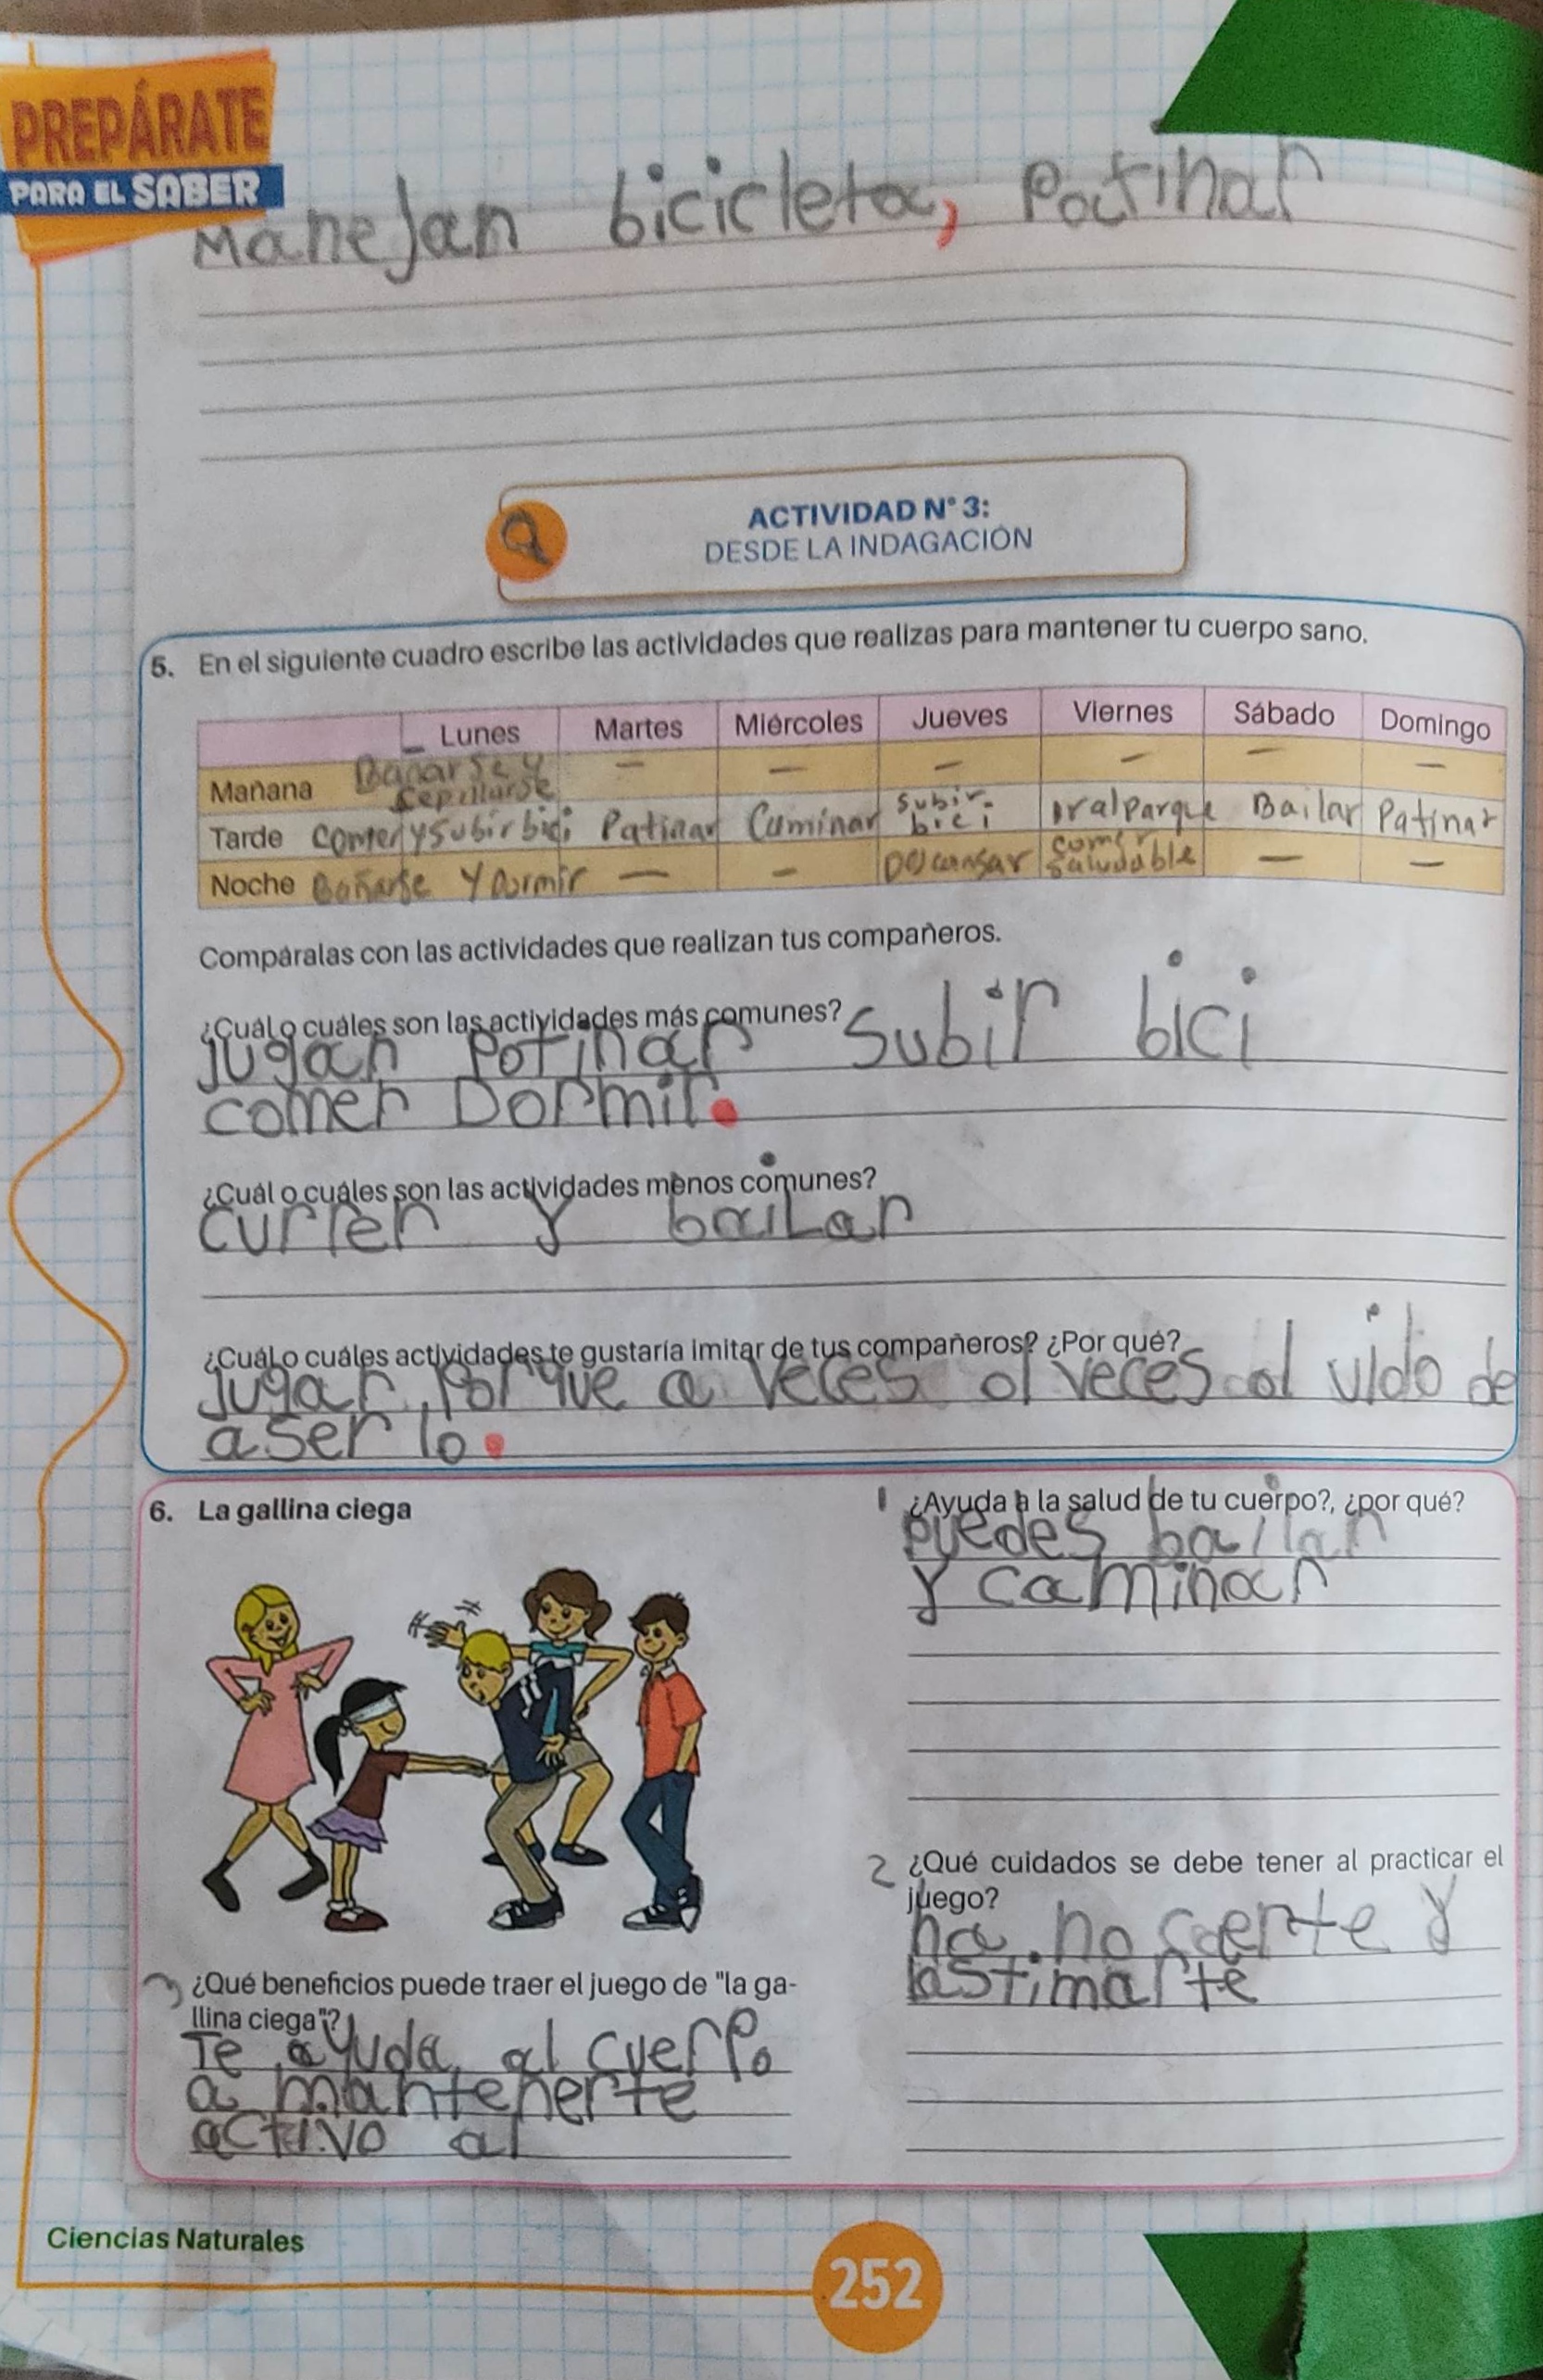 PREPÁRATE
PARA EL SABER
Manejan bicicleta, Patinar
ACTIVIDAD N° 3:
DESDE LA INDAGACIÓN
5. En el siguiente cuadro escribe las actividades que realizas para mantener tu cuerpo sano.
Lunes Martes Miércoles Jueves Viernes Sábado Domingo
Bañarse y
Mañana cepillarse — — — — — —
Tarde comer y subir bici Patinar Caminar subir bici ir al parque Bailar Patinar
Noche Bañarse y Dormir — — Descansar comer saludable — —
Compáralas con las actividades que realizan tus compañeros.
¿Cuál o cuáles son las actividades más comunes? subir bici
jugan Patinar
comer Dormir.
¿Cuál o cuáles son las actividades menos comunes?
currer y bailar
¿Cuál o cuáles actividades te gustaría imitar de tus compañeros? ¿Por qué?
jugar, Porque a veces ol veces ol vido de
aser lo.
6. La gallina ciega
1 ¿Ayuda a la salud de tu cuerpo?, ¿por qué?
Puedes bailar
y caminar
2 ¿Qué cuidados se debe tener al practicar el
juego?
ha. no caerte y
lastimarte
3 ¿Qué beneficios puede traer el juego de "la ga-
llina ciega"?
Te ayuda al cuerpo
a mantenerte
activo al
Ciencias Naturales
252